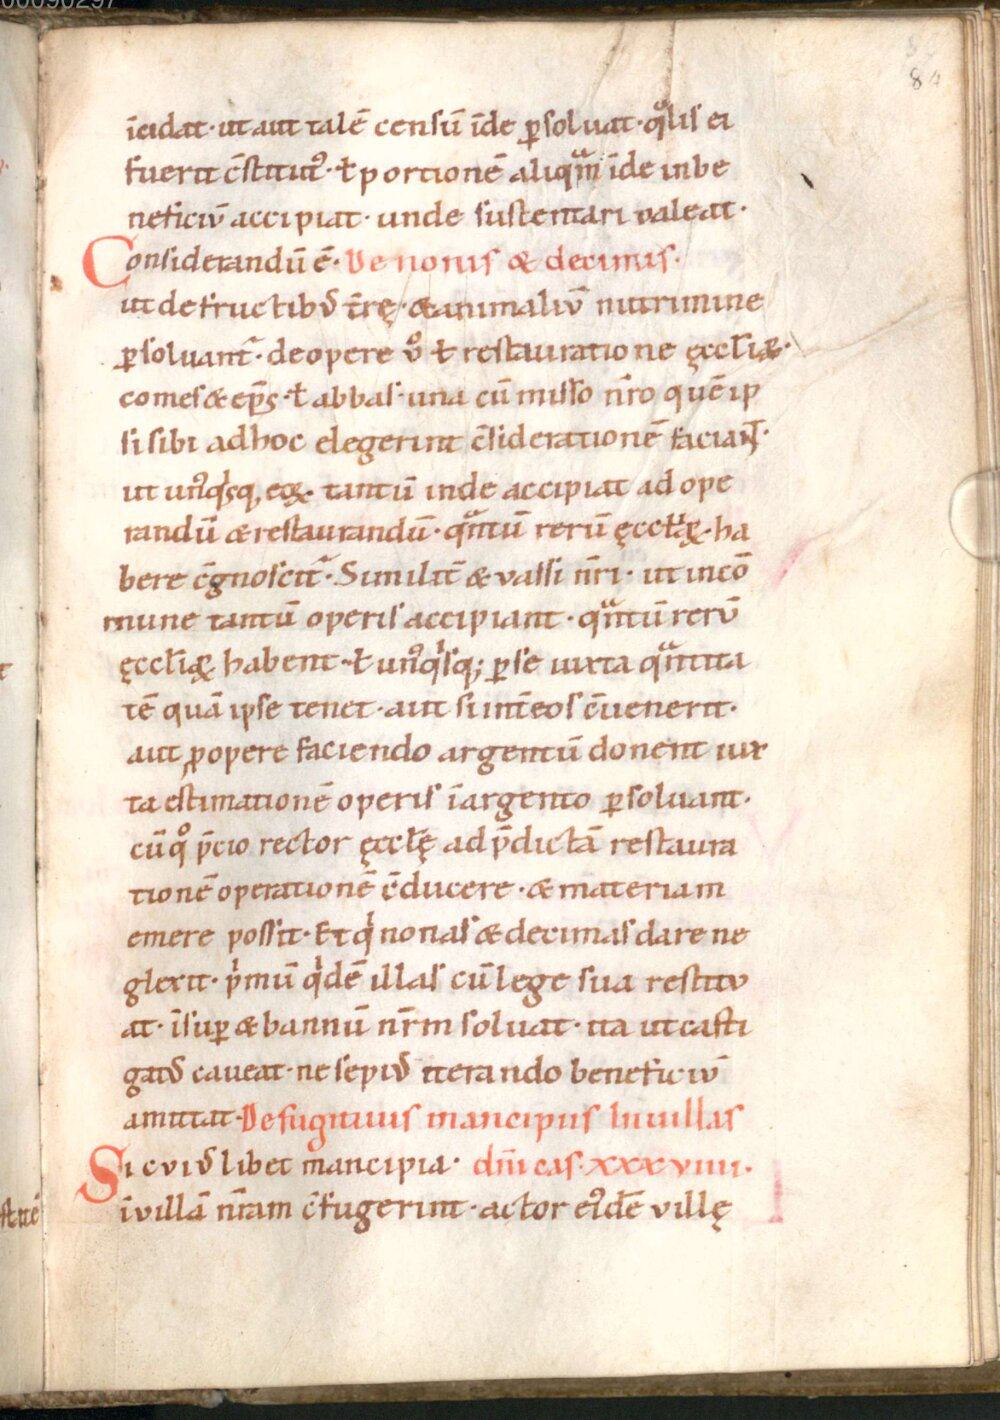 00090297
84
īcidat· ut aut talē censū īde ꝑsoluat· qͦlis ei
fuerit c̄stitutꝰ· ł portionē aliqͣm īde in be
neficiū accipiat· unde sustentari ualeat·
Considerandū ē· De nonis & decimis·
ut de fructibꝰ t̄rę· & animaliū nutrimine
ꝑsoluant᷑· de opere ůͦ ł restauratione ęccl̄iæ·
comes & ep̄s· ł abbas· una cū misso nr̄o quē ip
si sibi ad hoc elegerint c̄siderationē faciant·
ut unꝰqͥsq; eoꝝ tantū inde accipiat ad ope
randū & restaurandū· qͣntū rerū ęccłaꝝ· ha
bere c̄gnoscit᷑· Similit̄ & vassi nr̄i· ut in cō
mune tantū operis accipiant· qͣntū rerū
ęccl̄iaꝝ habent· ł unꝰqͥsq; ꝑ se iuxta qͣntita
tē quā ipse tenet· aut si int̄ eos c̄uenerit·
aut ꝓ opere faciendo argentū donent iux
ta estimationē operis ī argento ꝑsoluant·
cū qͦ p̄cio rector ęccłę ad p̄dictā restaura
tionē operationē c̄ducere· & materiam
emere possit· Et qͥ nonas & decimas dare ne
glexit· pͥmū qͥdē illas cū lege sua restitu
at· īsuꝑ & bannū nr̄m soluat· ita ut casti
gatꝰ caueat· ne sepiꝰ iterando beneficiū
amittat· De fugitiuis mancipiis In uillas
Si cuiꝰlibet mancipia· dm̄icas· xxxviiii·
ī villā nr̄am c̄fugerint· actor eiꝰdē villę